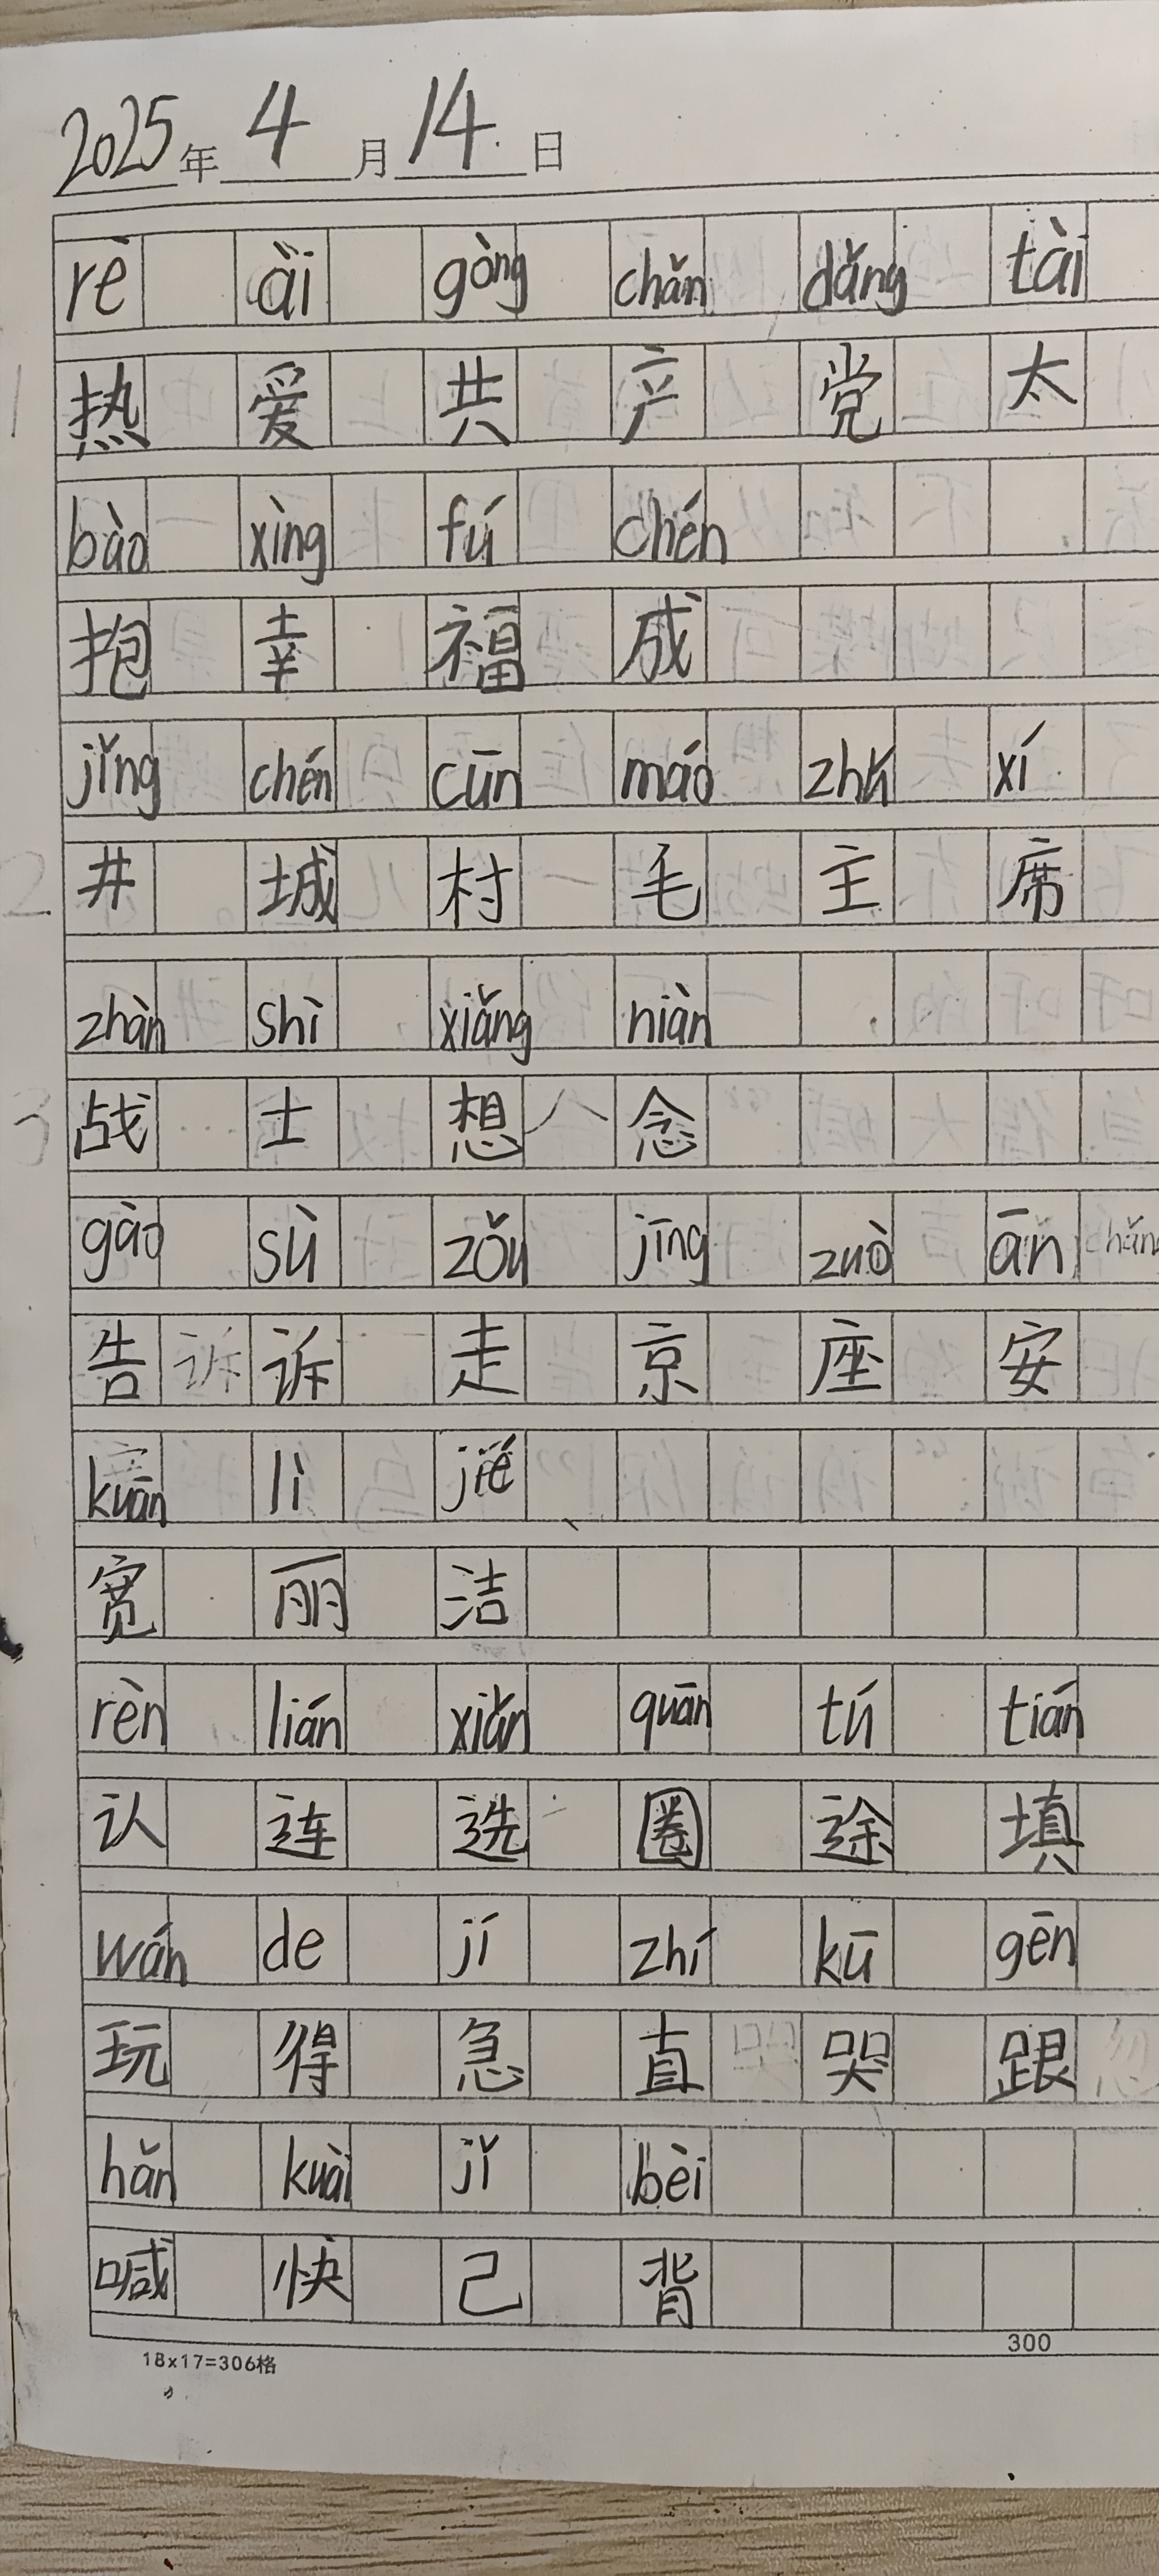 2025年4月14日
rè ài gòng chǎn dǎng tài
1 热 爱 共 产 党 太
bào xìng fú chén
抱 幸 福 成
jǐng chén cūn máo zhǔ xí
2. 井 城 村 毛 主 席
zhàn shì xiǎng niàn
3 战 士 想 念
gào sù zǒu jīng zuò ān
告 诉 诉 走 京 座 安
kuān lì jié
宽 丽 洁
rèn lián xiǎn quān tú tián
认 连 选 圈 途 填
wán de jí zhí kū gēn
玩 得 急 直 哭 跟
hǎn kuài jǐ bèi
喊 快 己 背
300
18x17=306格